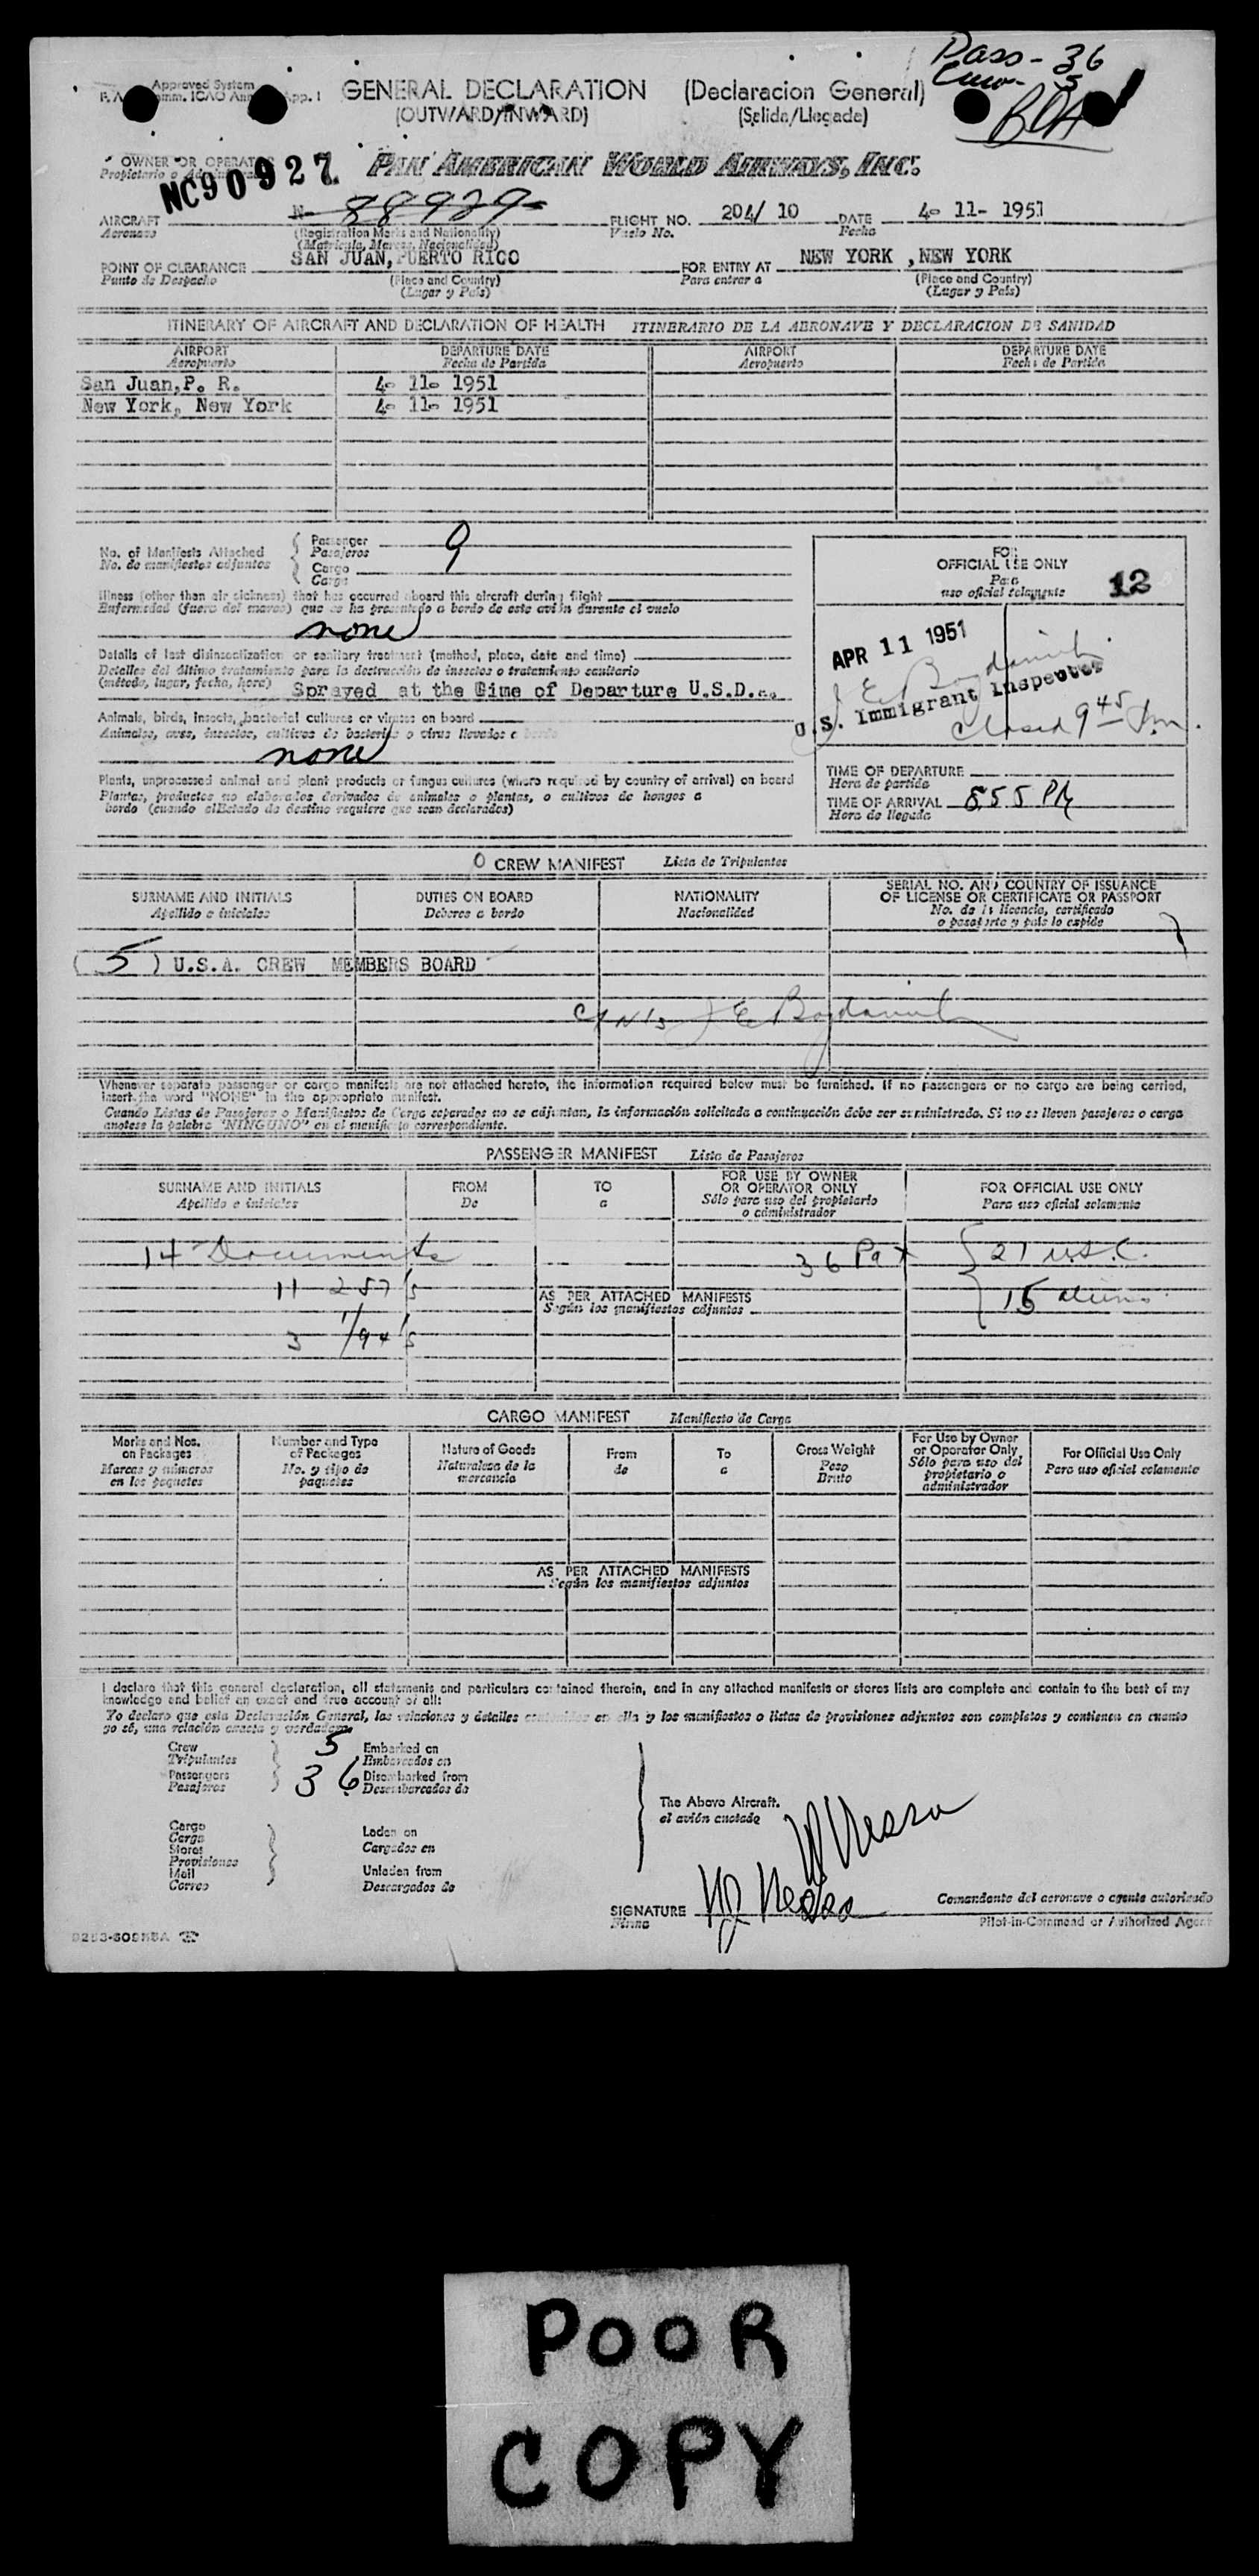 Pass - 36
Crew - 5
Approved System
GENERAL DECLARATION (Declaracion General)
(OUTWARD/INWARD) (Salida/Llegada)
OWNER OR OPERATOR PAN AMERICAN WORLD AIRWAYS, INC.
NC90927.
AIRCRAFT N- 88929 FLIGHT NO. 204/ 10 DATE 4- 11- 1951
Aeronave (Registration Marks and Nationality) Vuelo No. Fecha
(Matricula, Marcas, Nacionalidad)
POINT OF CLEARANCE SAN JUAN, PUERTO RICO FOR ENTRY AT NEW YORK , NEW YORK
Punto de Despacho (Place and Country) Para entrar a (Place and Country)
(Lugar y País) (Lugar y País)
ITINERARY OF AIRCRAFT AND DECLARATION OF HEALTH ITINERARIO DE LA AERONAVE Y DECLARACION DE SANIDAD
AIRPORT DEPARTURE DATE AIRPORT DEPARTURE DATE
Aeropuerto Fecha de Partida Aeropuerto Fecha de Partida
San Juan, P. R. 4- 11- 1951
New York, New York 4- 11- 1951
No. of Manifests Attached Passenger 9
No. de manifiestos adjuntos Pasajeros
Cargo
Carga
FOR
OFFICIAL USE ONLY
Para
uso oficial solamente
12
Illness (other than air sickness) that has occurred aboard this aircraft during flight
Enfermedad (fuera del mareo) que se ha presentado a bordo de este avión durante el vuelo
none
APR 11 1951
U.S. Immigrant Inspector
Closed 9 45 Pm.
Details of last disinsectization or sanitary treatment (method, place, date and time)
Detalles del último tratamiento para la destrucción de insectos o tratamiento sanitario
(método, lugar, fecha, hora) Sprayed at the Time of Departure U.S.D.
Animals, birds, insects, bacterial cultures or viruses on board
Animales, aves, insectos, cultivos de bacterias o virus llevados a bordo
none
Plants, unprocessed animal and plant products or fungus cultures (where required by country of arrival) on board
Plantas, productos no elaborados derivados de animales o plantas, o cultivos de hongos a
bordo (cuando el Estado de destino requiere que sean declarados)
TIME OF DEPARTURE
Hora de partida
TIME OF ARRIVAL 855 PM
Hora de llegada
CREW MANIFEST Lista de Tripulantes
SURNAME AND INITIALS DUTIES ON BOARD NATIONALITY SERIAL NO. AND COUNTRY OF ISSUANCE
Apellido e iniciales Deberes a bordo Nacionalidad OF LICENSE OR CERTIFICATE OR PASSPORT
No. de la licencia, certificado
o pasaporte y país lo expide
( 5 ) U.S.A. CREW MEMBERS BOARD
Whenever separate passenger or cargo manifests are not attached hereto, the information required below must be furnished. If no passengers or no cargo are being carried,
insert the word "NONE" in the appropriate manifest.
Cuando Listas de Pasajeros o Manifiestos de Carga separados no se adjuntan, la información solicitada a continuación debe ser suministrada. Si no se lleven pasajeros o carga
anótese la palabra "NINGUNO" en el manifiesto correspondiente.
PASSENGER MANIFEST Lista de Pasajeros
SURNAME AND INITIALS FROM TO FOR USE BY OWNER FOR OFFICIAL USE ONLY
Apellido e iniciales De a OR OPERATOR ONLY Para uso oficial solamente
Sólo para uso del propietario
o administrador
14 Documents 36 Pax 21 U.S.C.
11 257's 15 aliens
AS PER ATTACHED MANIFESTS
Según los manifiestos adjuntos
3 1/94's
CARGO MANIFEST Manifiesto de Carga
Marks and Nos. on Packages Number and Type of Packages Nature of Goods From To Gross Weight For Use by Owner or Operator Only For Official Use Only
Marcas y números en los paquetes No. y tipo de paquetes Naturaleza de la mercancía de a Peso Bruto Sólo para uso del propietario o administrador Para uso oficial solamente
AS PER ATTACHED MANIFESTS
Según los manifiestos adjuntos
I declare that this general declaration, all statements and particulars contained therein, and in any attached manifests or stores lists are complete and contain to the best of my
knowledge and belief an exact and true account of all:
Yo declaro que esta Declaración General, las relaciones y detalles contenidos en ella y los manifiestos o listas de provisiones adjuntos son completos y contienen en cuanto
yo sé, una relación exacta y verdadera
Crew 5 Embarked on
Tripulantes Embarcados en
Passengers 36 Disembarked from
Pasajeros Desembarcados de
The Above Aircraft.
el avión anotado
Cargo Laden on
Carga Cargados en
Stores
Provisiones
Mail Unladen from
Correo Descargados de
SIGNATURE
Firma
Comandante del aeronave o agente autorizado
Pilot-in-Command or Authorized Agent
POOR
COPY